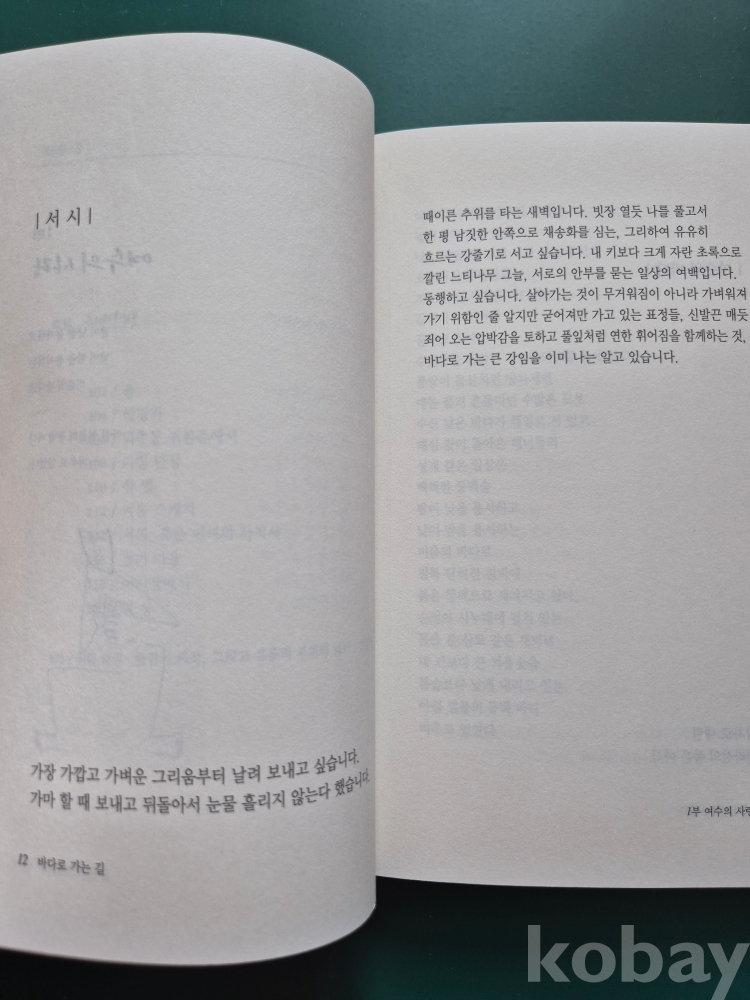 |서 시|
가장 가깝고 가벼운 그리움부터 날려 보내고 싶습니다.
가마 할 때 보내고 뒤돌아서 눈물 흘리지 않는다 했습니다.
12 바다로 가는 길
때이른 추위를 타는 새벽입니다. 빗장 열듯 나를 풀고서
한 평 남짓한 안쪽으로 채송화를 심는, 그리하여 유유히
흐르는 강줄기로 서고 싶습니다. 내 키보다 크게 자란 초록으로
깔린 느티나무 그늘, 서로의 안부를 묻는 일상의 여백입니다.
동행하고 싶습니다. 살아가는 것이 무거워짐이 아니라 가벼워져
가기 위함인 줄 알지만 굳어져만 가고 있는 표정들, 신발끈 매듯
죄어 오는 압박감을 토하고 풀잎처럼 연한 휘어짐을 함께하는 것,
바다로 가는 큰 강임을 이미 나는 알고 있습니다.
1부 여수의 사랑
kobay